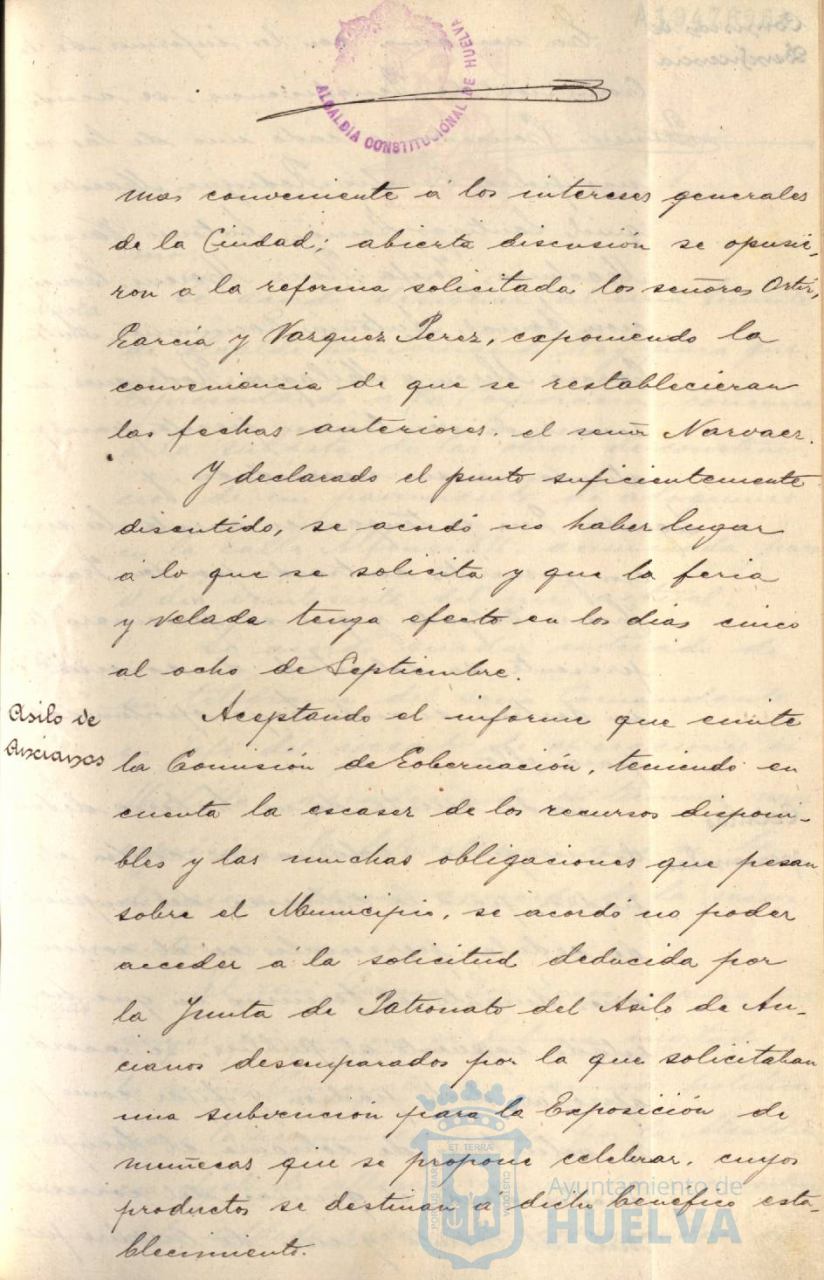 ALCALDÍA CONSTITUCIONAL DE HUELVA
mas conveniente á los intereses generales
de la Ciudad; abierta discusión se opusie-
ron á la reforma solicitada los señores Ortiz,
García y Vazquez Perez, exponiendo la
conveniencia de que se restablecieran
las fechas anteriores. el señor Narvaez.
Y declarado el punto suficientemente
discutido, se acordó no haber lugar
á lo que se solicita y que la feria
y velada tenga efecto en los dias cinco
al ocho de Septiembre.
Asilo de
Ancianos
Aceptando el informe que emite
la Comisión de Gobernación, teniendo en
cuenta la escasez de los recursos disponi-
bles y las muchas obligaciones que pesan
sobre el Municipio, se acordó no poder
acceder á la solicitud deducida por
la Junta de Patronato del Asilo de An-
cianos desamparados por la que solicitaban
una subvención para la Exposición de
muñecas que se propone celebrar, cuyos
productos se destinan á dicho benéfico esta-
blecimiento.
PORTUS MARIS ET TERRAE CUSTODIA
Ayuntamiento de
HUELVA